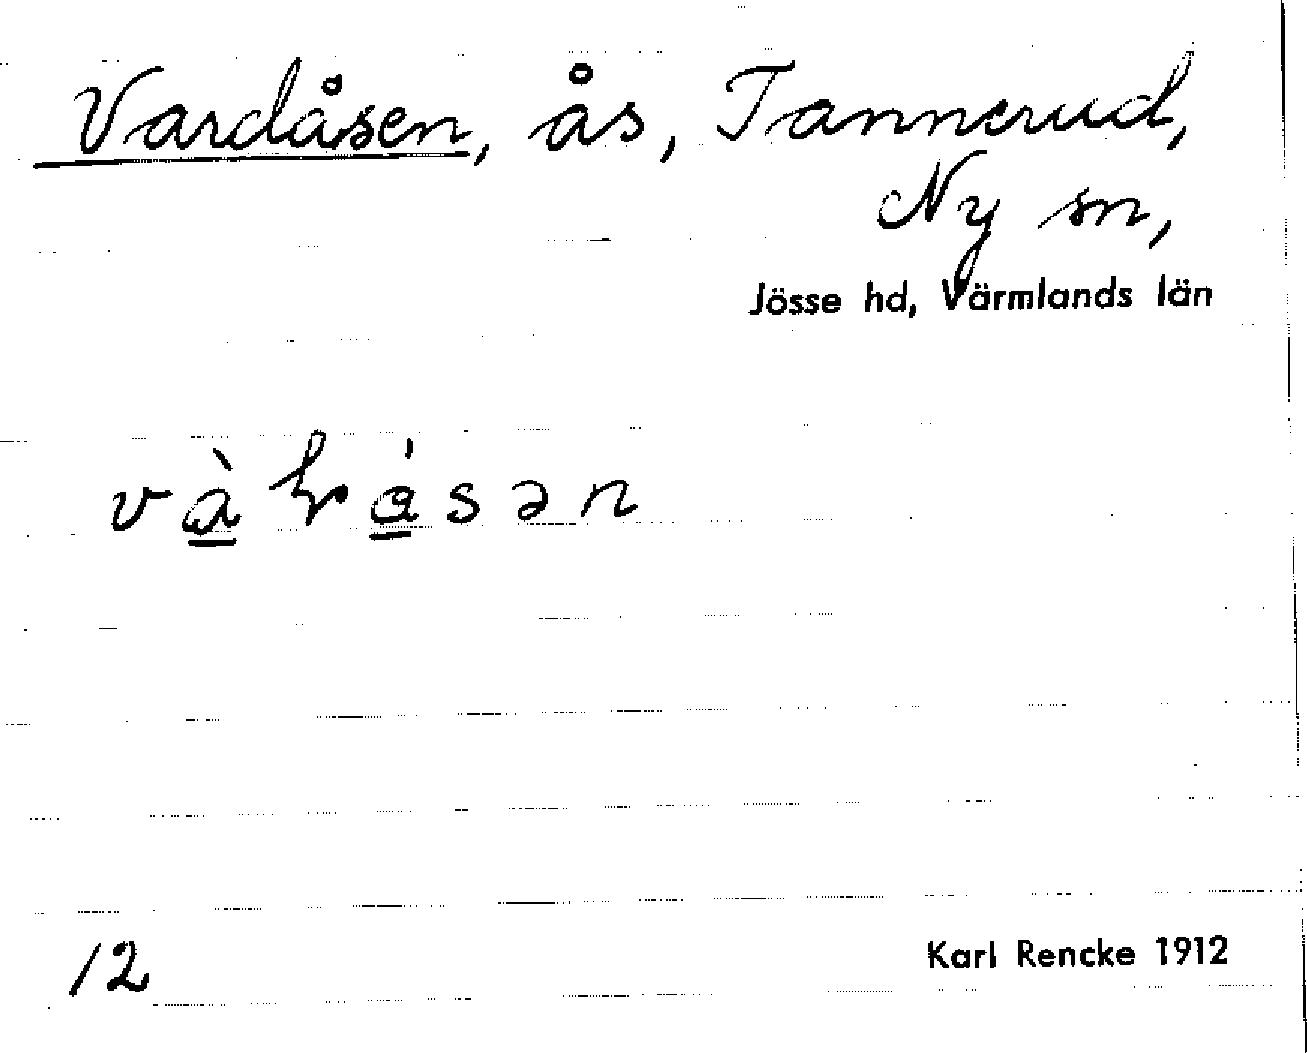 Vardåsen, ås, Tannerud,
Ny sn,
Jösse hd, Värmlands län
12
Karl Rencke 1912